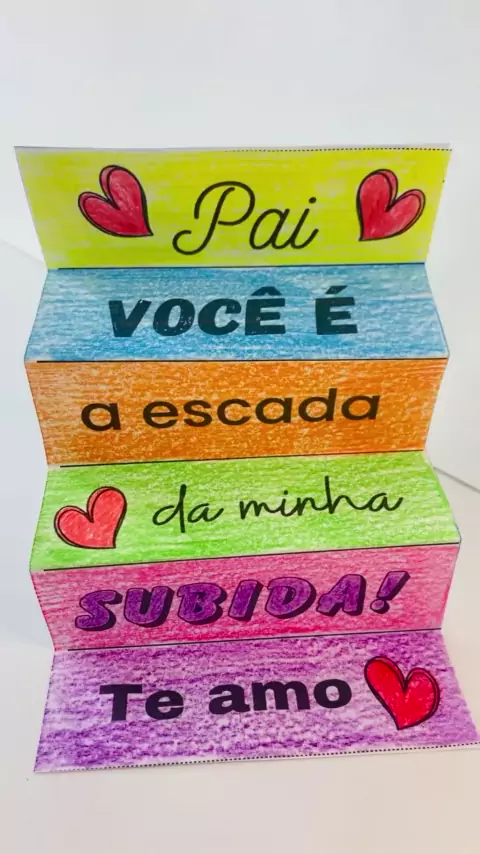 Pai
VOCÊ É
a escada
da minha
SUBIDA!
Te amo